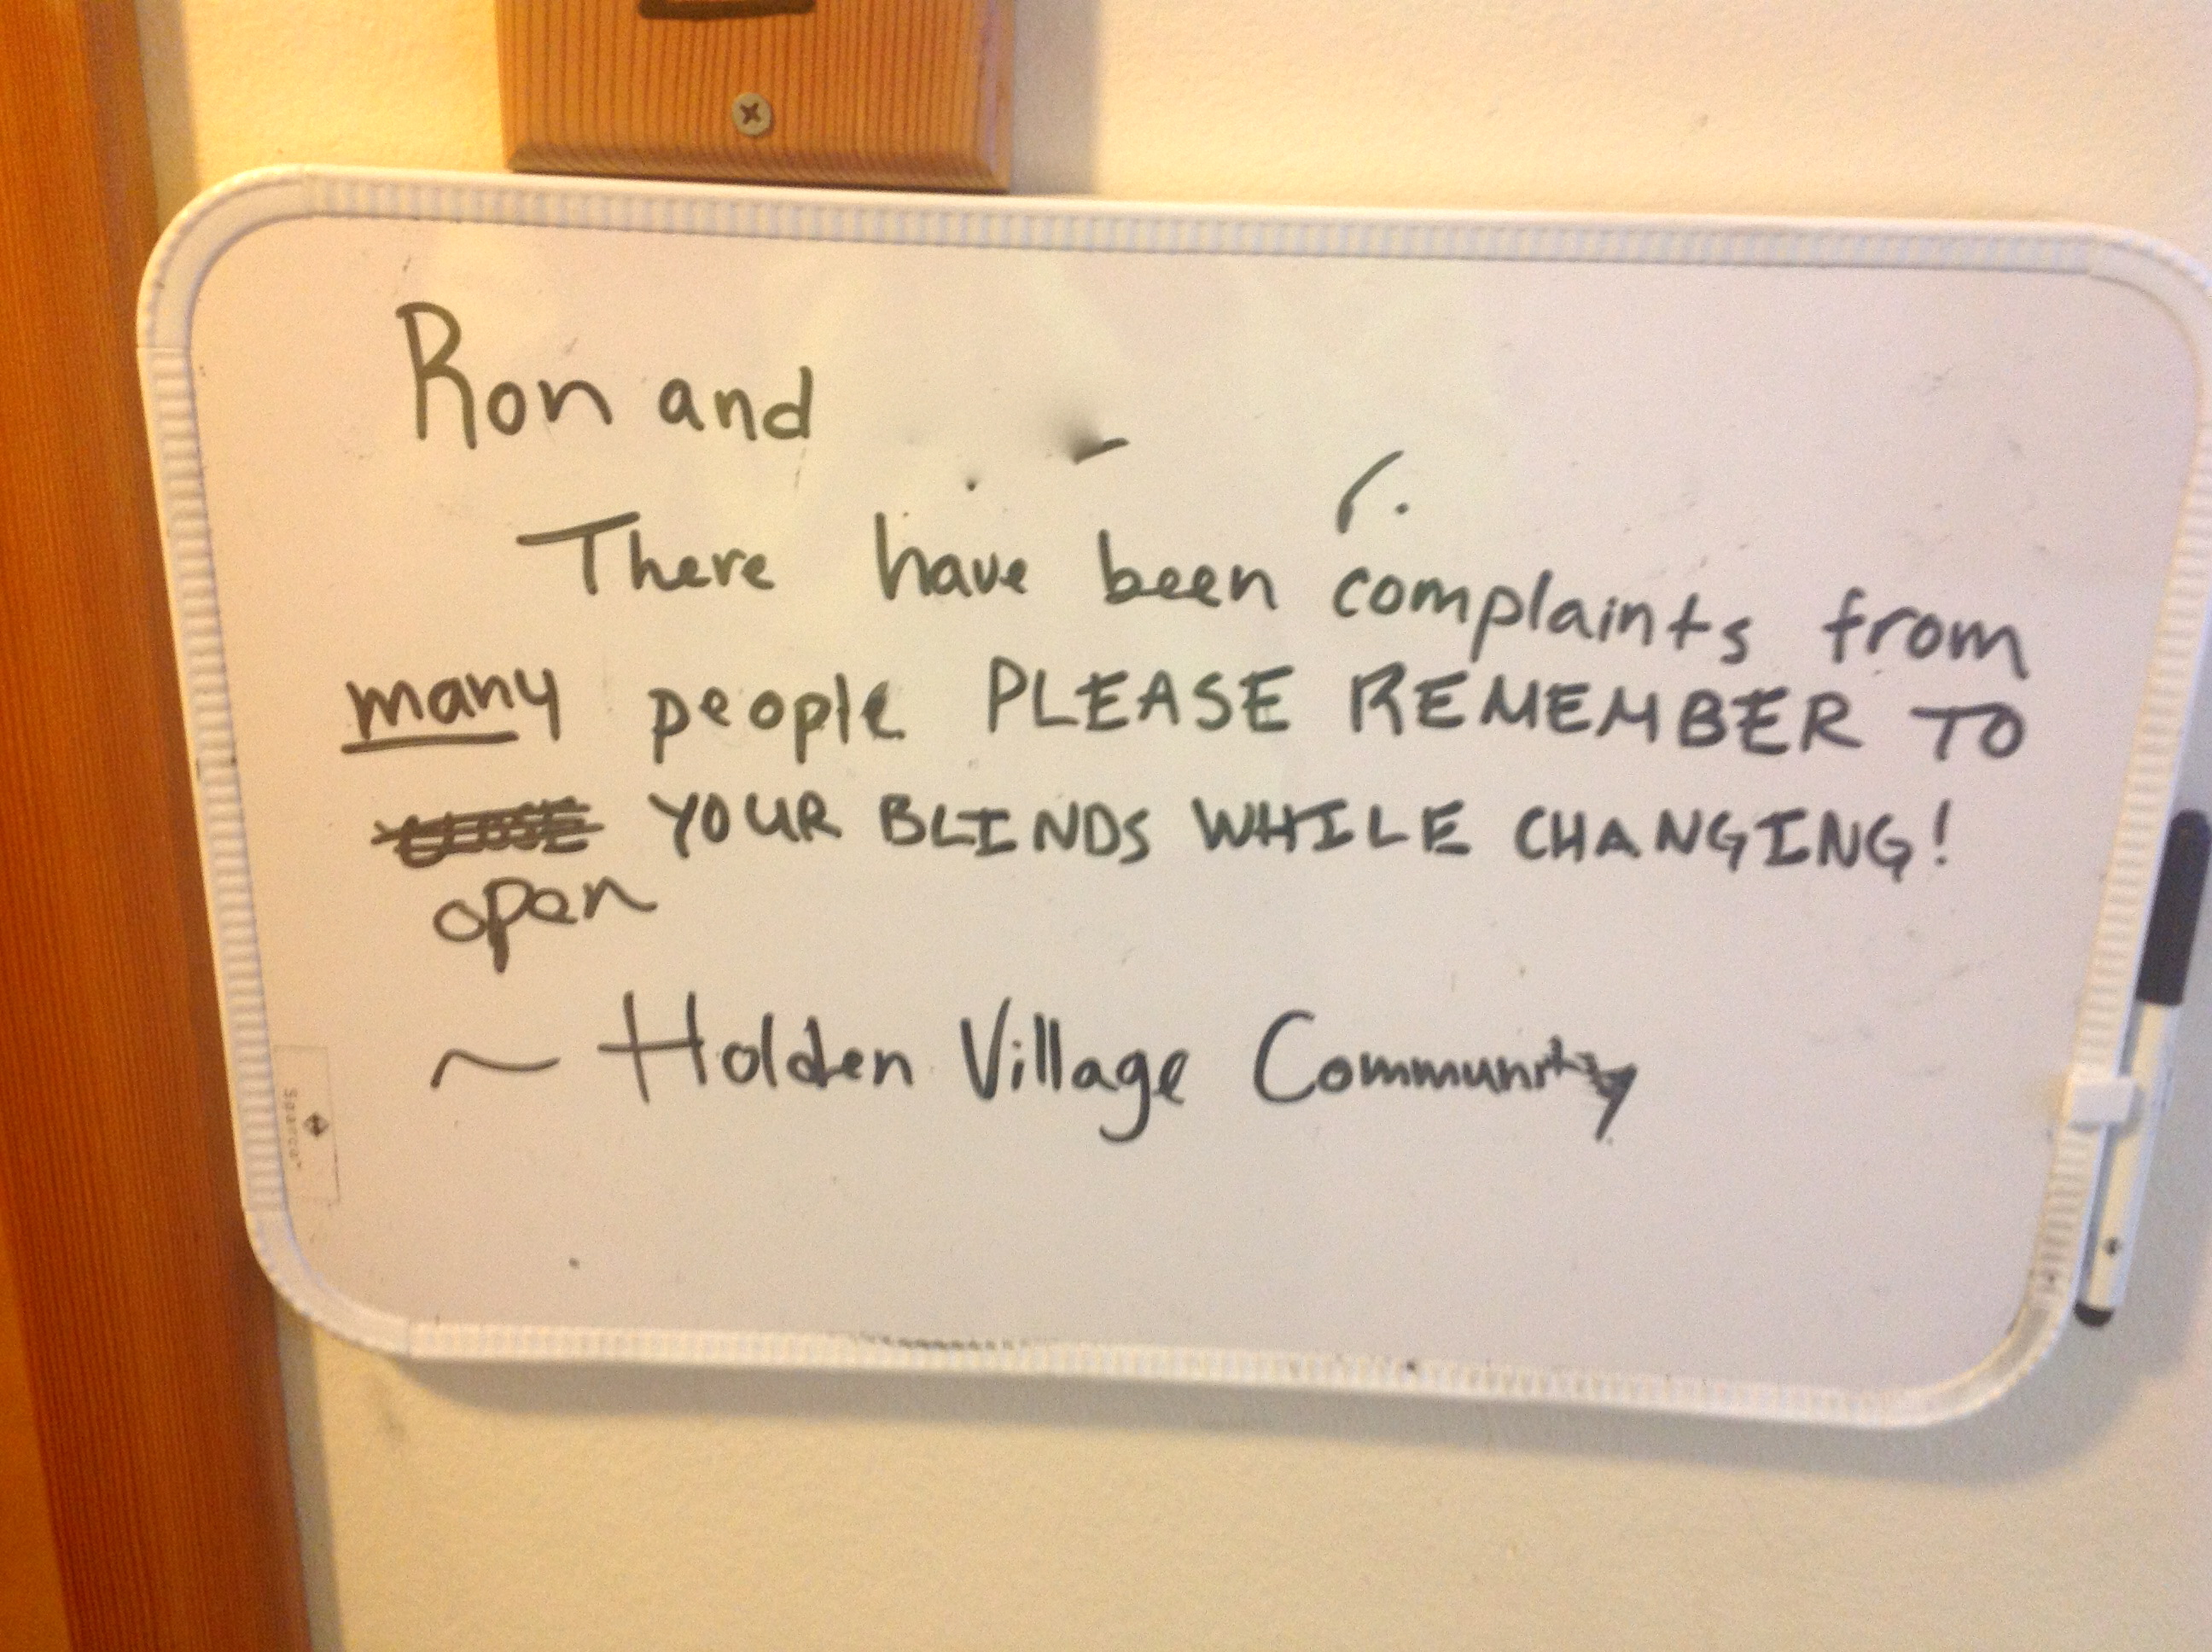 Ron and
There have been complaints from
many people PLEASE REMEMBER TO
CLOSE YOUR BLINDS WHILE CHANGING!
open
~ Holden Village Community
Sparco